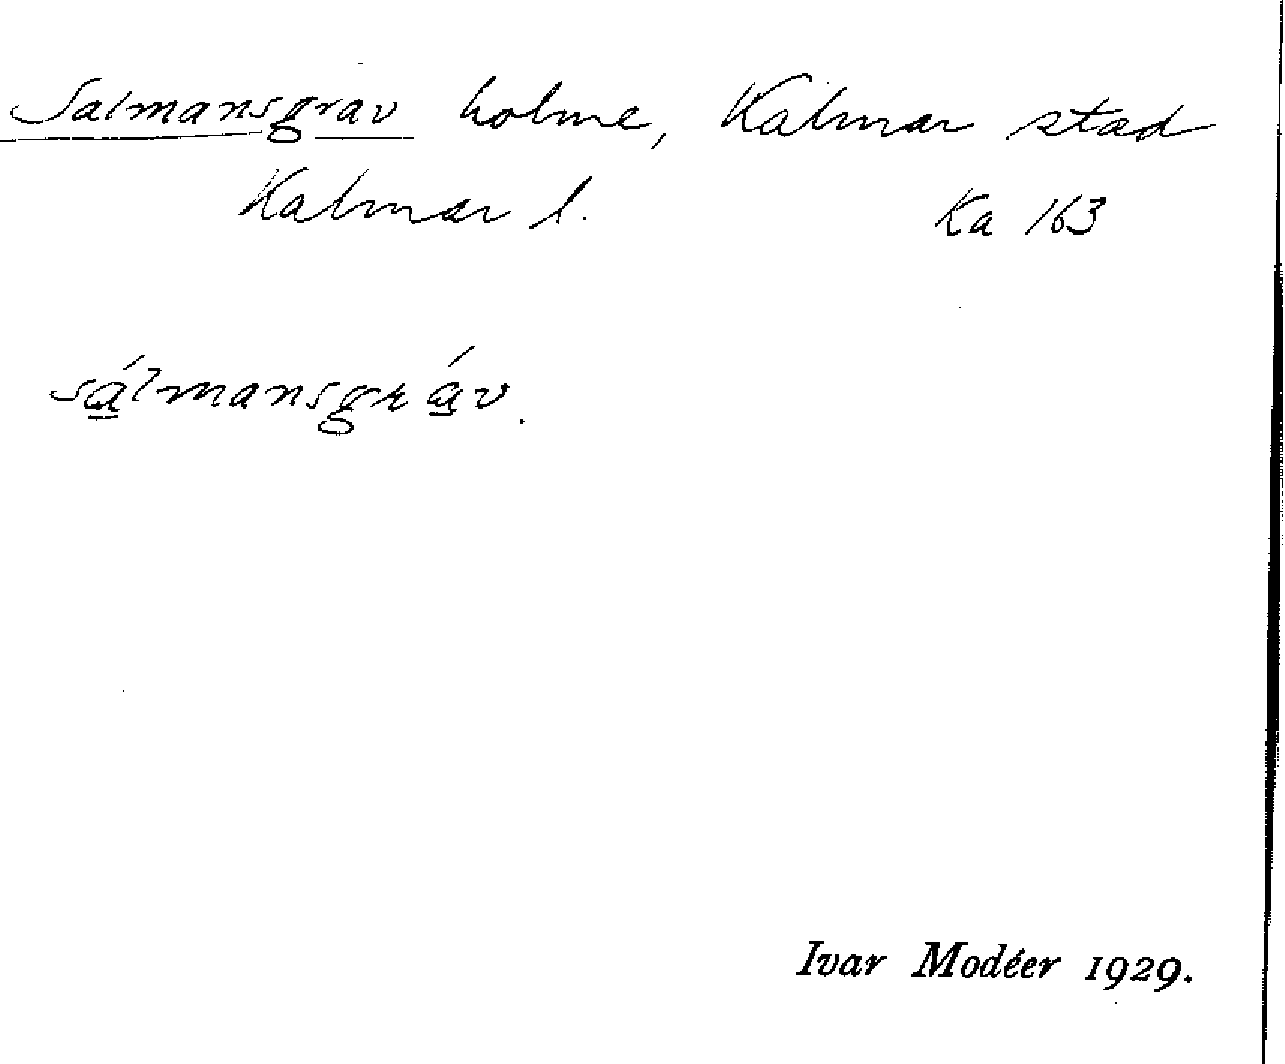 Salmansgrav holme, Kalmar stad
Kalmar l. Ka 163
sálmansgráv.
Ivar Modéer 1929.